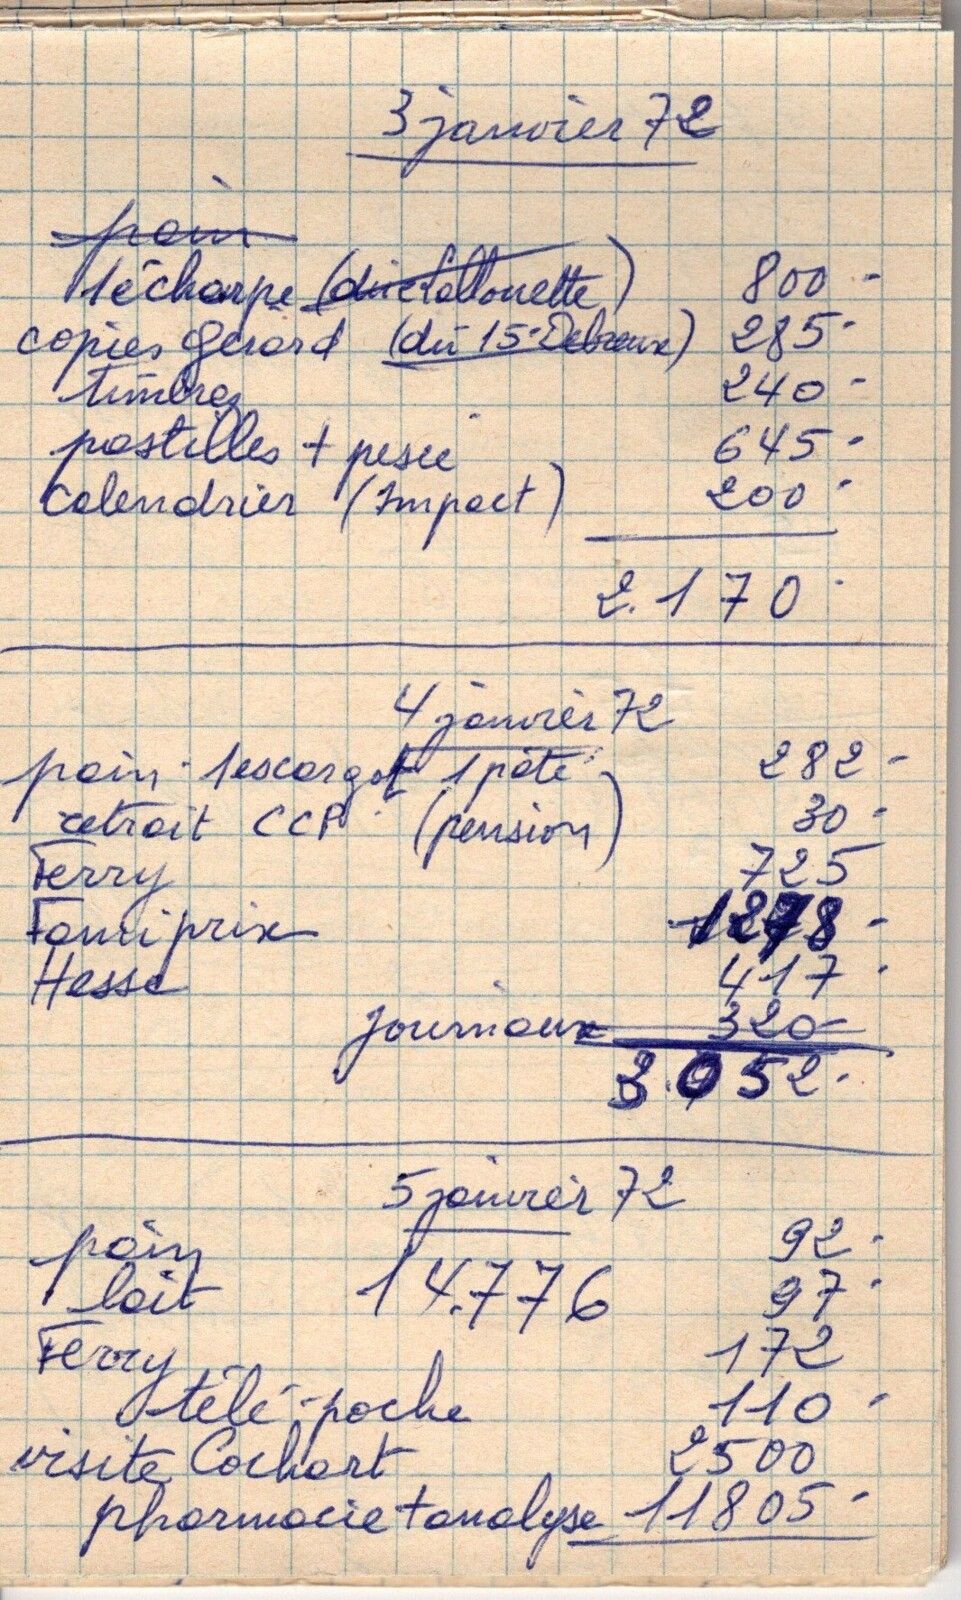 3 janvier 72
pain
1 écharpe (dû 800 -
copies Gérard (dû 15 285 -
timbres 240 -
pastilles + pesée 645 -
calendrier (Impact) 200 -
2.170 -
4 janvier 72
pain - 1 escargot 1 pâté 282 -
retrait CCP (pension) 30 -
Ferry 725
Familiprix 1278 -
Hesse 417 -
journaux 320 -
3.052 -
5 janvier 72
pain 92 -
lait 14.776 97 -
Ferry 172
télé-poche 110 -
visite Cochart 2500
pharmacie + analyse 11805 -